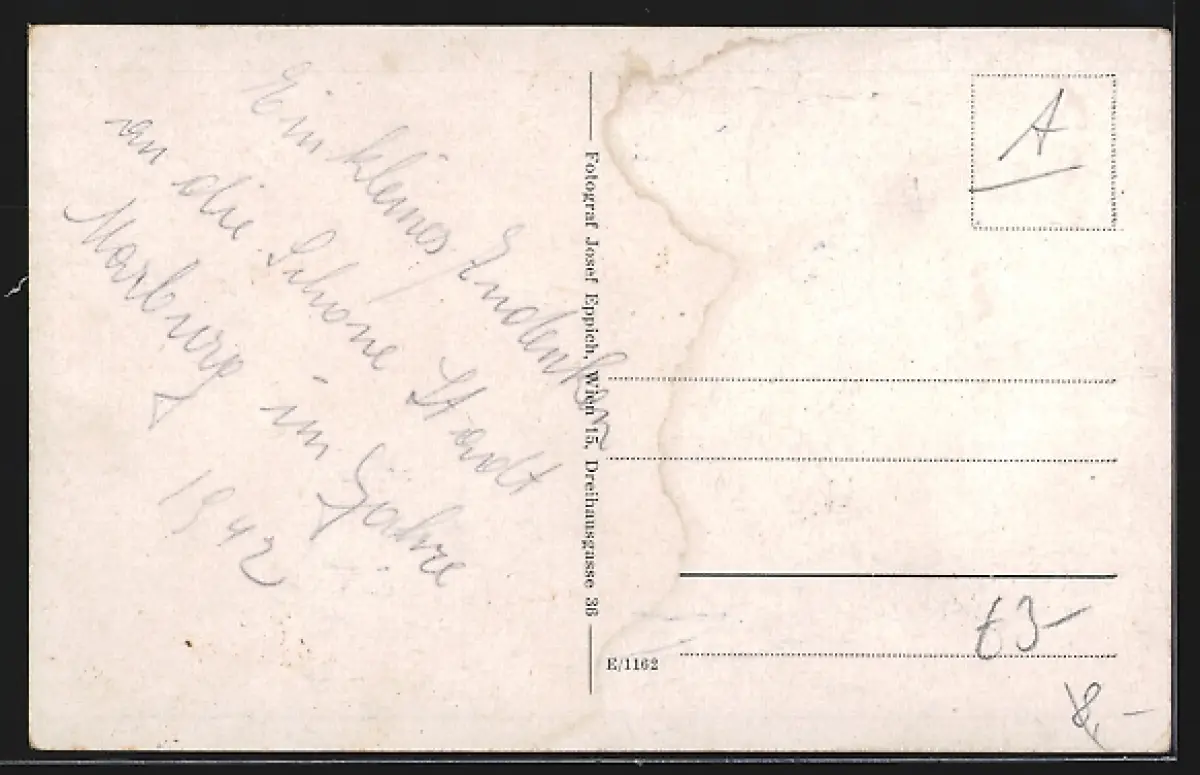 Ein kleines Endenken
an die Schöne Stadt
Marburg im Jahre
1942
Fotograf Josef Eppich, Wien 15, Dreihausgasse 36
A
E/1162
8,-